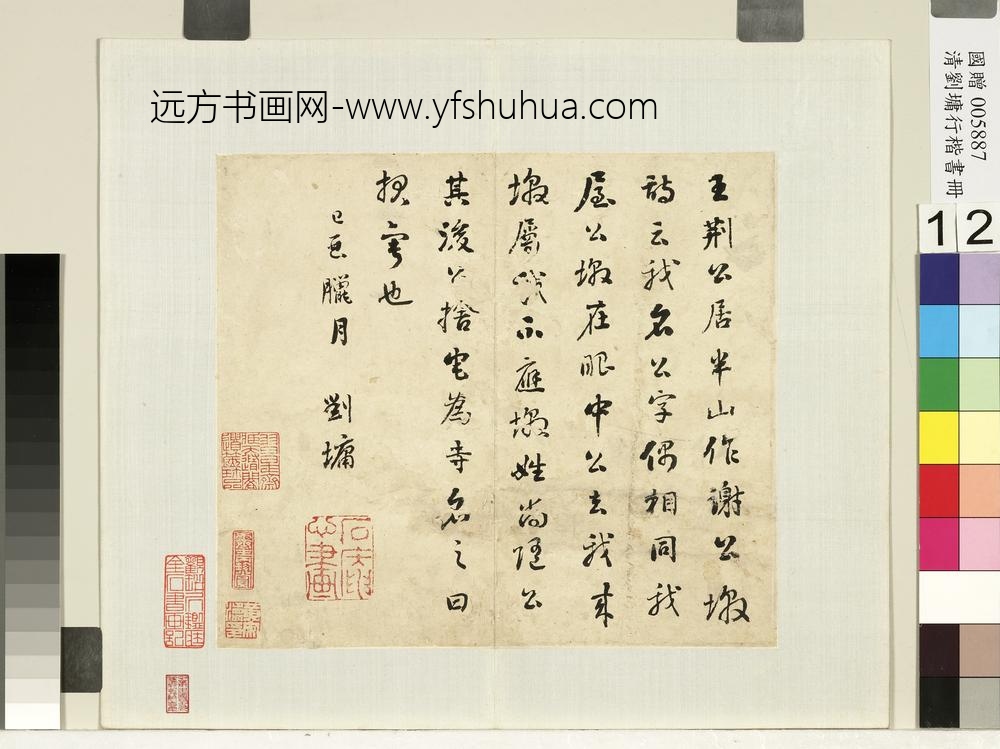 远方书画网-www.yfshuhua.com
國贈 005887
清劉墉行楷書冊
12
王荆公居半山作谢公墩
詩云我名公字偶相同我
屋公墩在眼中公去我来
墩屬我不應墩姓尚随公
其後公捨宅為寺名之曰
報寧也
己亥臘月 劉墉